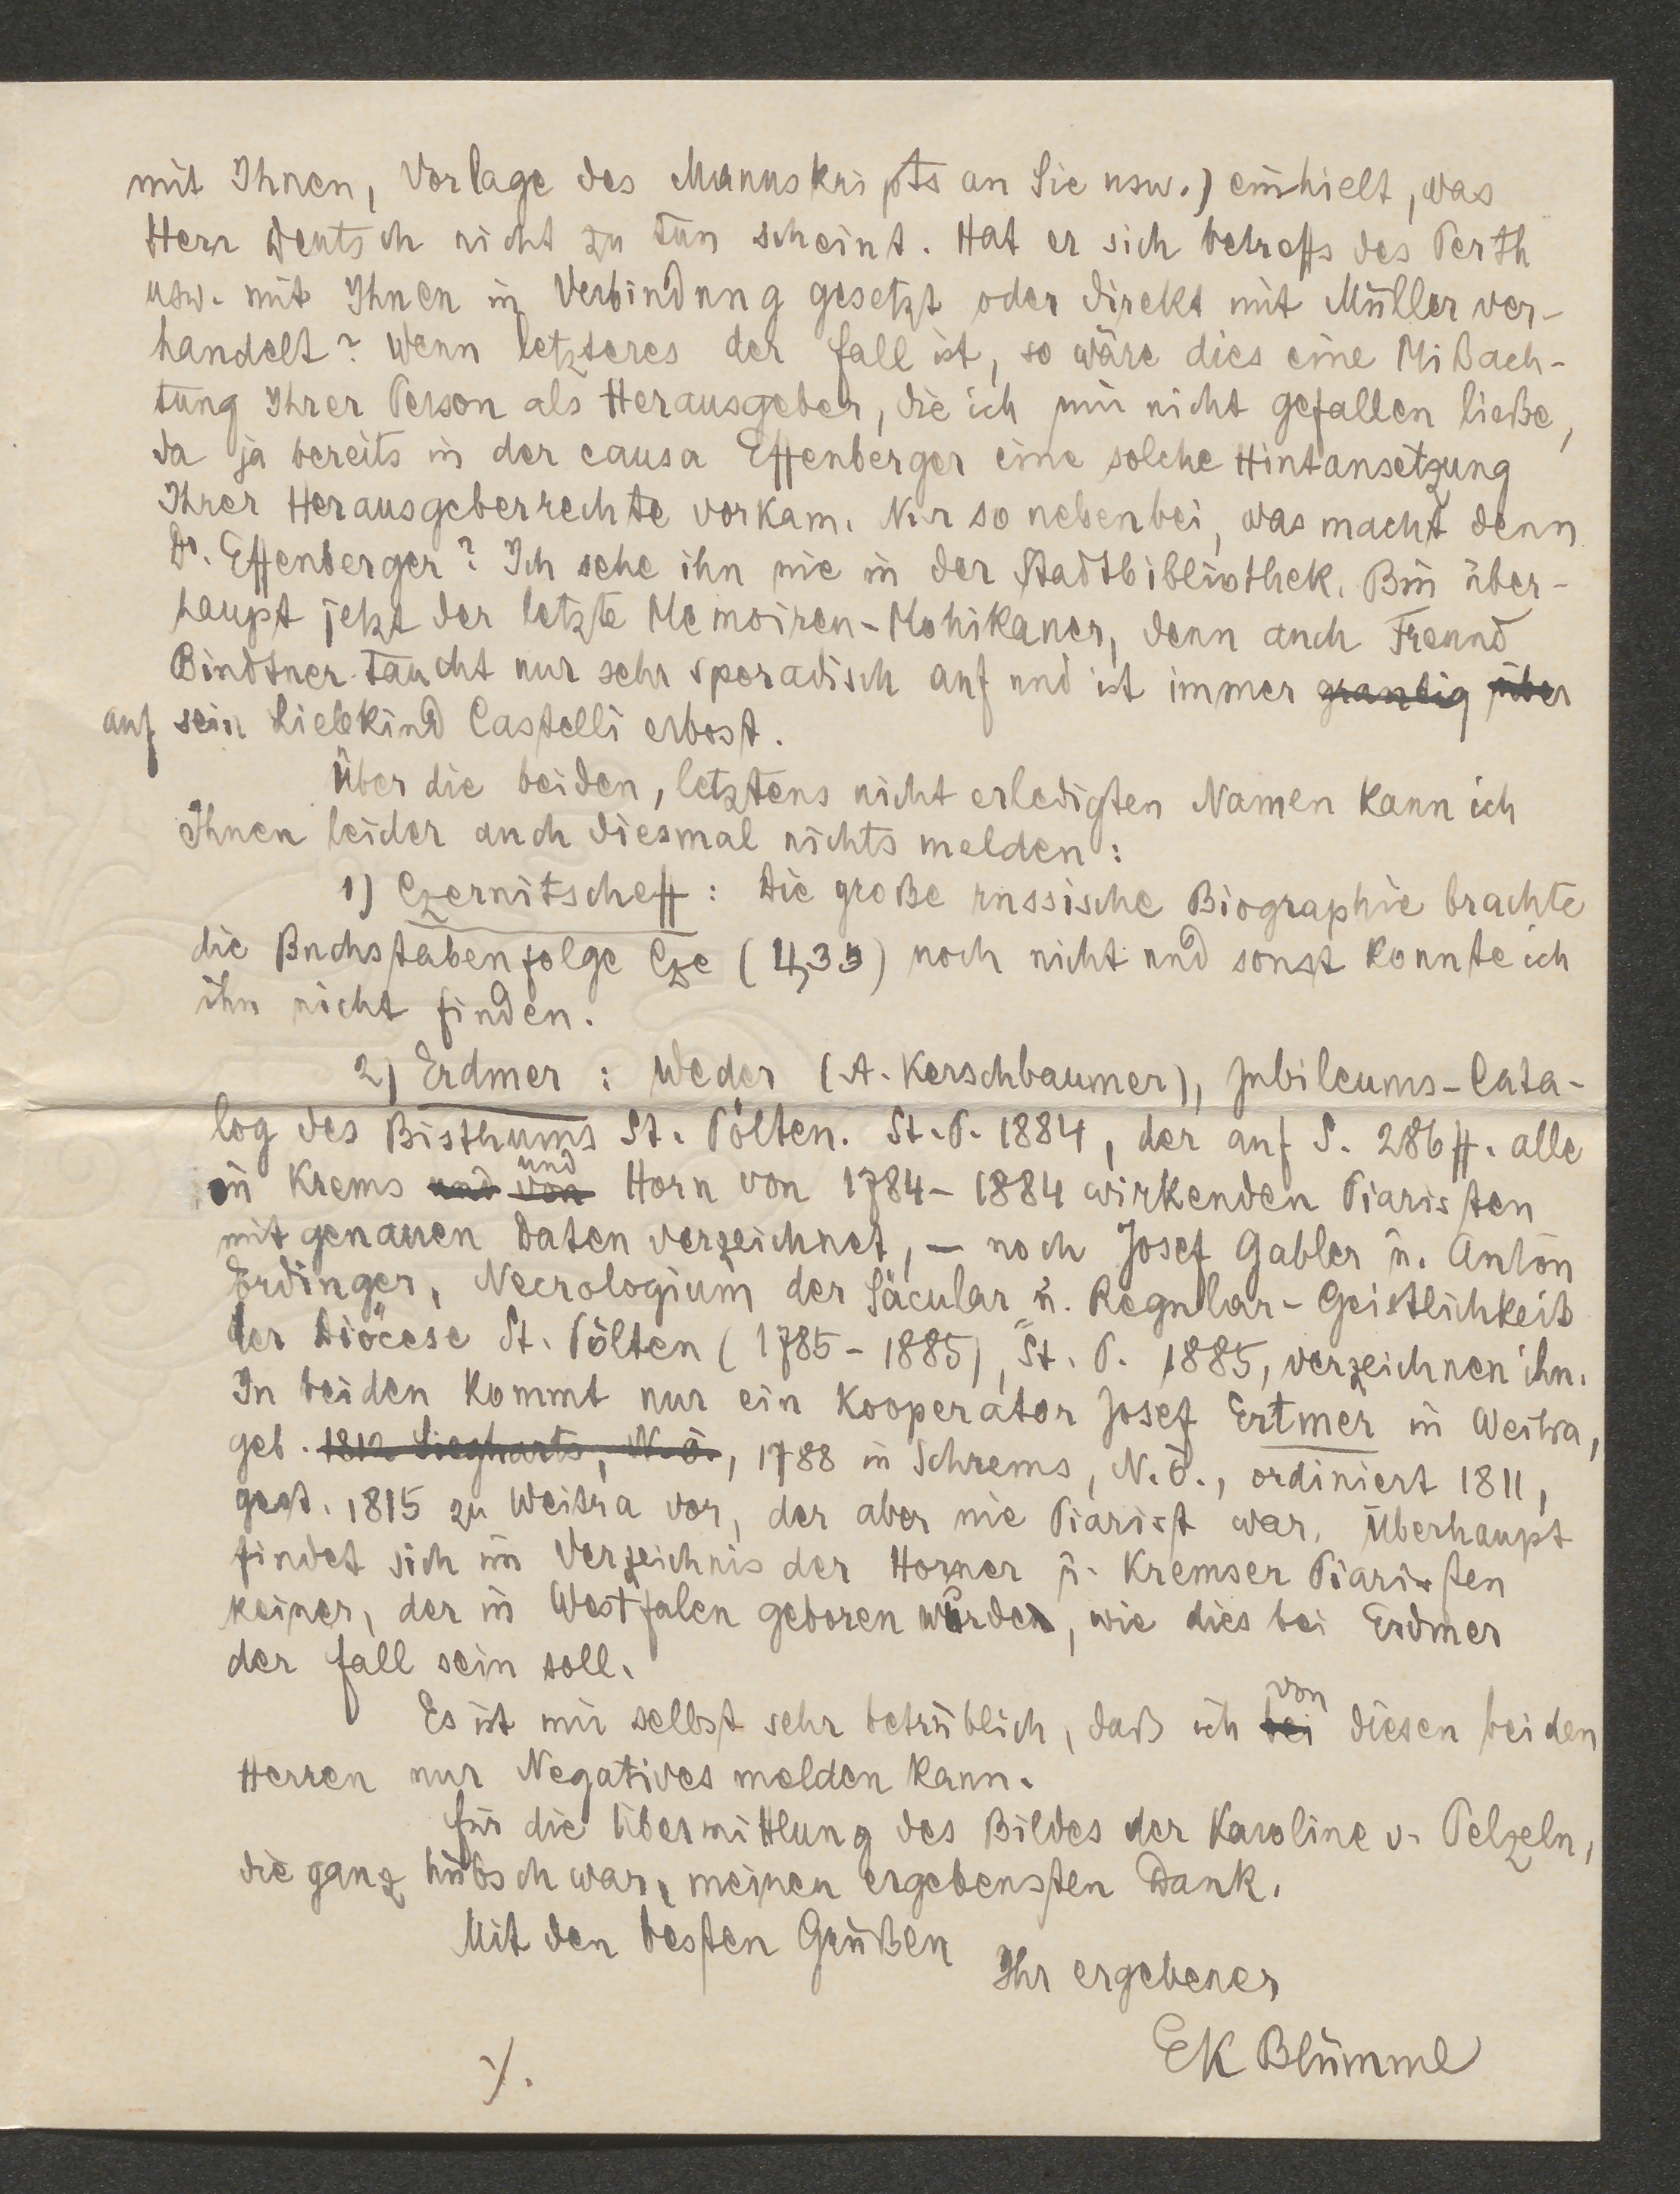 mit Ihnen, Vorlage des Manuskripts an Sie usw.) einhielt, was
Herr Deutsch nicht zu tun scheint. Hat er sich betreffs des Perth
usw. mit Ihnen in Verbindung gesetzt oder direkt mit Müller ver-
handelt? Wenn letzteres der Fall ist, so wäre dies eine Mißach-
tung Ihrer Person als Herausgeber, die ich mir nicht gefallen ließe,
da ja bereits in der causa Effenberger eine solche Hintansetzung
Ihrer Herausgeberrechte vorkam. Nur so nebenbei, was macht denn
Dr. Effenberger? Ich sehe ihn nie in der Stadtbibliothek. Bin über-
haupt jetzt der letzte Memoiren-Mohikaner, denn auch Freund
Bindtner taucht nur sehr sporadisch auf und ist immer grantig über
auf sein Liebkind Castelli erbost.
Über die beiden, letztens nicht erledigten Namen kann ich
Ihnen leider auch diesmal nichts melden:
1) Czernitscheff: Die große russische Biographie brachte
die Buchstabenfolge Cze (4,33) noch nicht und sonst konnte ich
ihn nicht finden.
2) Erdmer: Weder (A. Kerschbaumer), Jubileums-Cata-
log des Bisthums St. Pölten. St. P. 1884, der auf S. 286 ff. alle
in Krems und von und Horn von 1784-1884 wirkenden Piaristen
mit genauen Daten verzeichnet, – noch Josef Gabler u. Anton
Erdinger, Necrologium der Säcular u. Regular-Geistlichkeit
der Diöcese St. Pölten (1785-1885), St. P. 1885, verzeichnen ihn.
In beiden kommt nur ein Kooperator Josef Ertmer in Weitra,
geb. 1812 Siegharts, N.Ö., 1788 in Schrems, N.Ö., ordiniert 1811,
gest. 1815 zu Weitra vor, der aber nie Piarist war. Überhaupt
findet sich im Verzeichnis der Horner u. Kremser Piaristen
keiner, der in Westfalen geboren wurde, wie dies bei Erdmer
der Fall sein soll.
Es ist mir selbst sehr betrüblich, daß ich bei von diesen beiden
Herren nur Negatives melden kann.
Für die Übermittlung des Bildes der Karoline v. Pelzeln,
die ganz hübsch war, meinen ergebensten Dank.
Mit den besten Grüßen
Ihr ergebener
EK Blümml